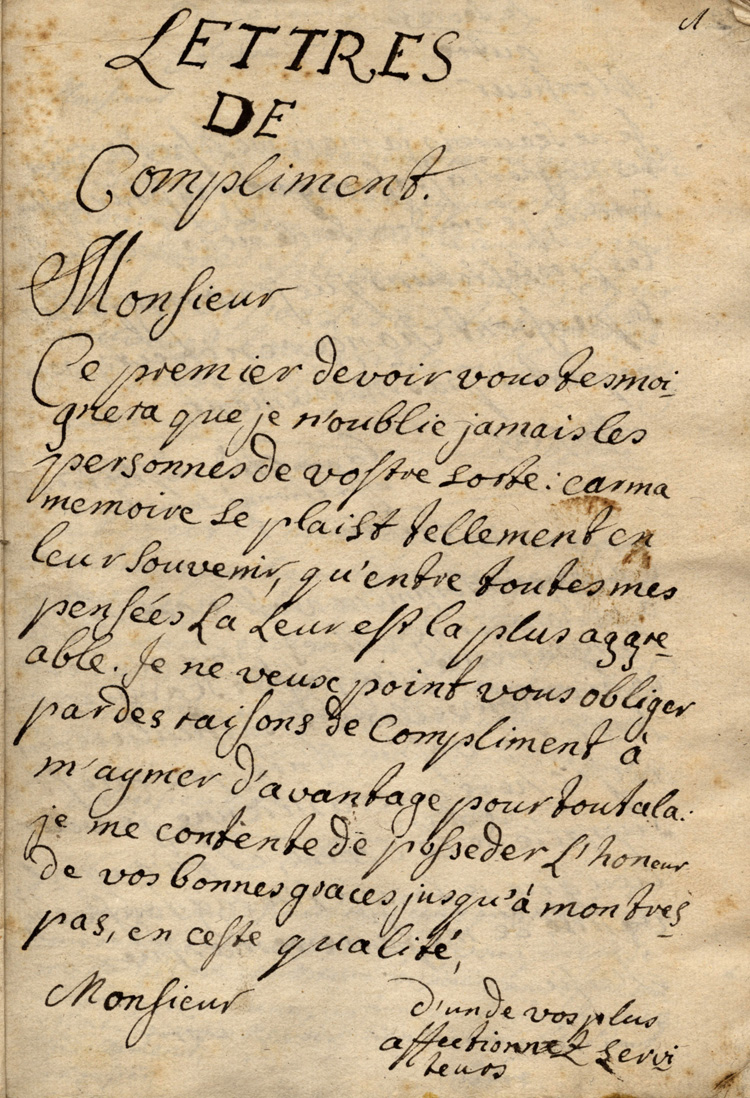 1
LETTRES
DE
Compliment.
Monsieur
Ce premier devoir vous tesmoi-
gnera que je n'oublie jamais les
personnes de vostre sorte: car ma
memoire se plaist tellement en
leur souvenir, qu'entre toutes mes
pensées la leur est la plus aggre-
able. Je ne veux point vous obliger
par des raisons de Compliment à
m'aymer d'avantage pour tout ala:
je me contente de posseder l'honeur
de vos bonnes graces jusqu'à mon tres-
pas, en ceste qualité,
Monsieur
d'un de vos plus
affectionnez servi-
teurs